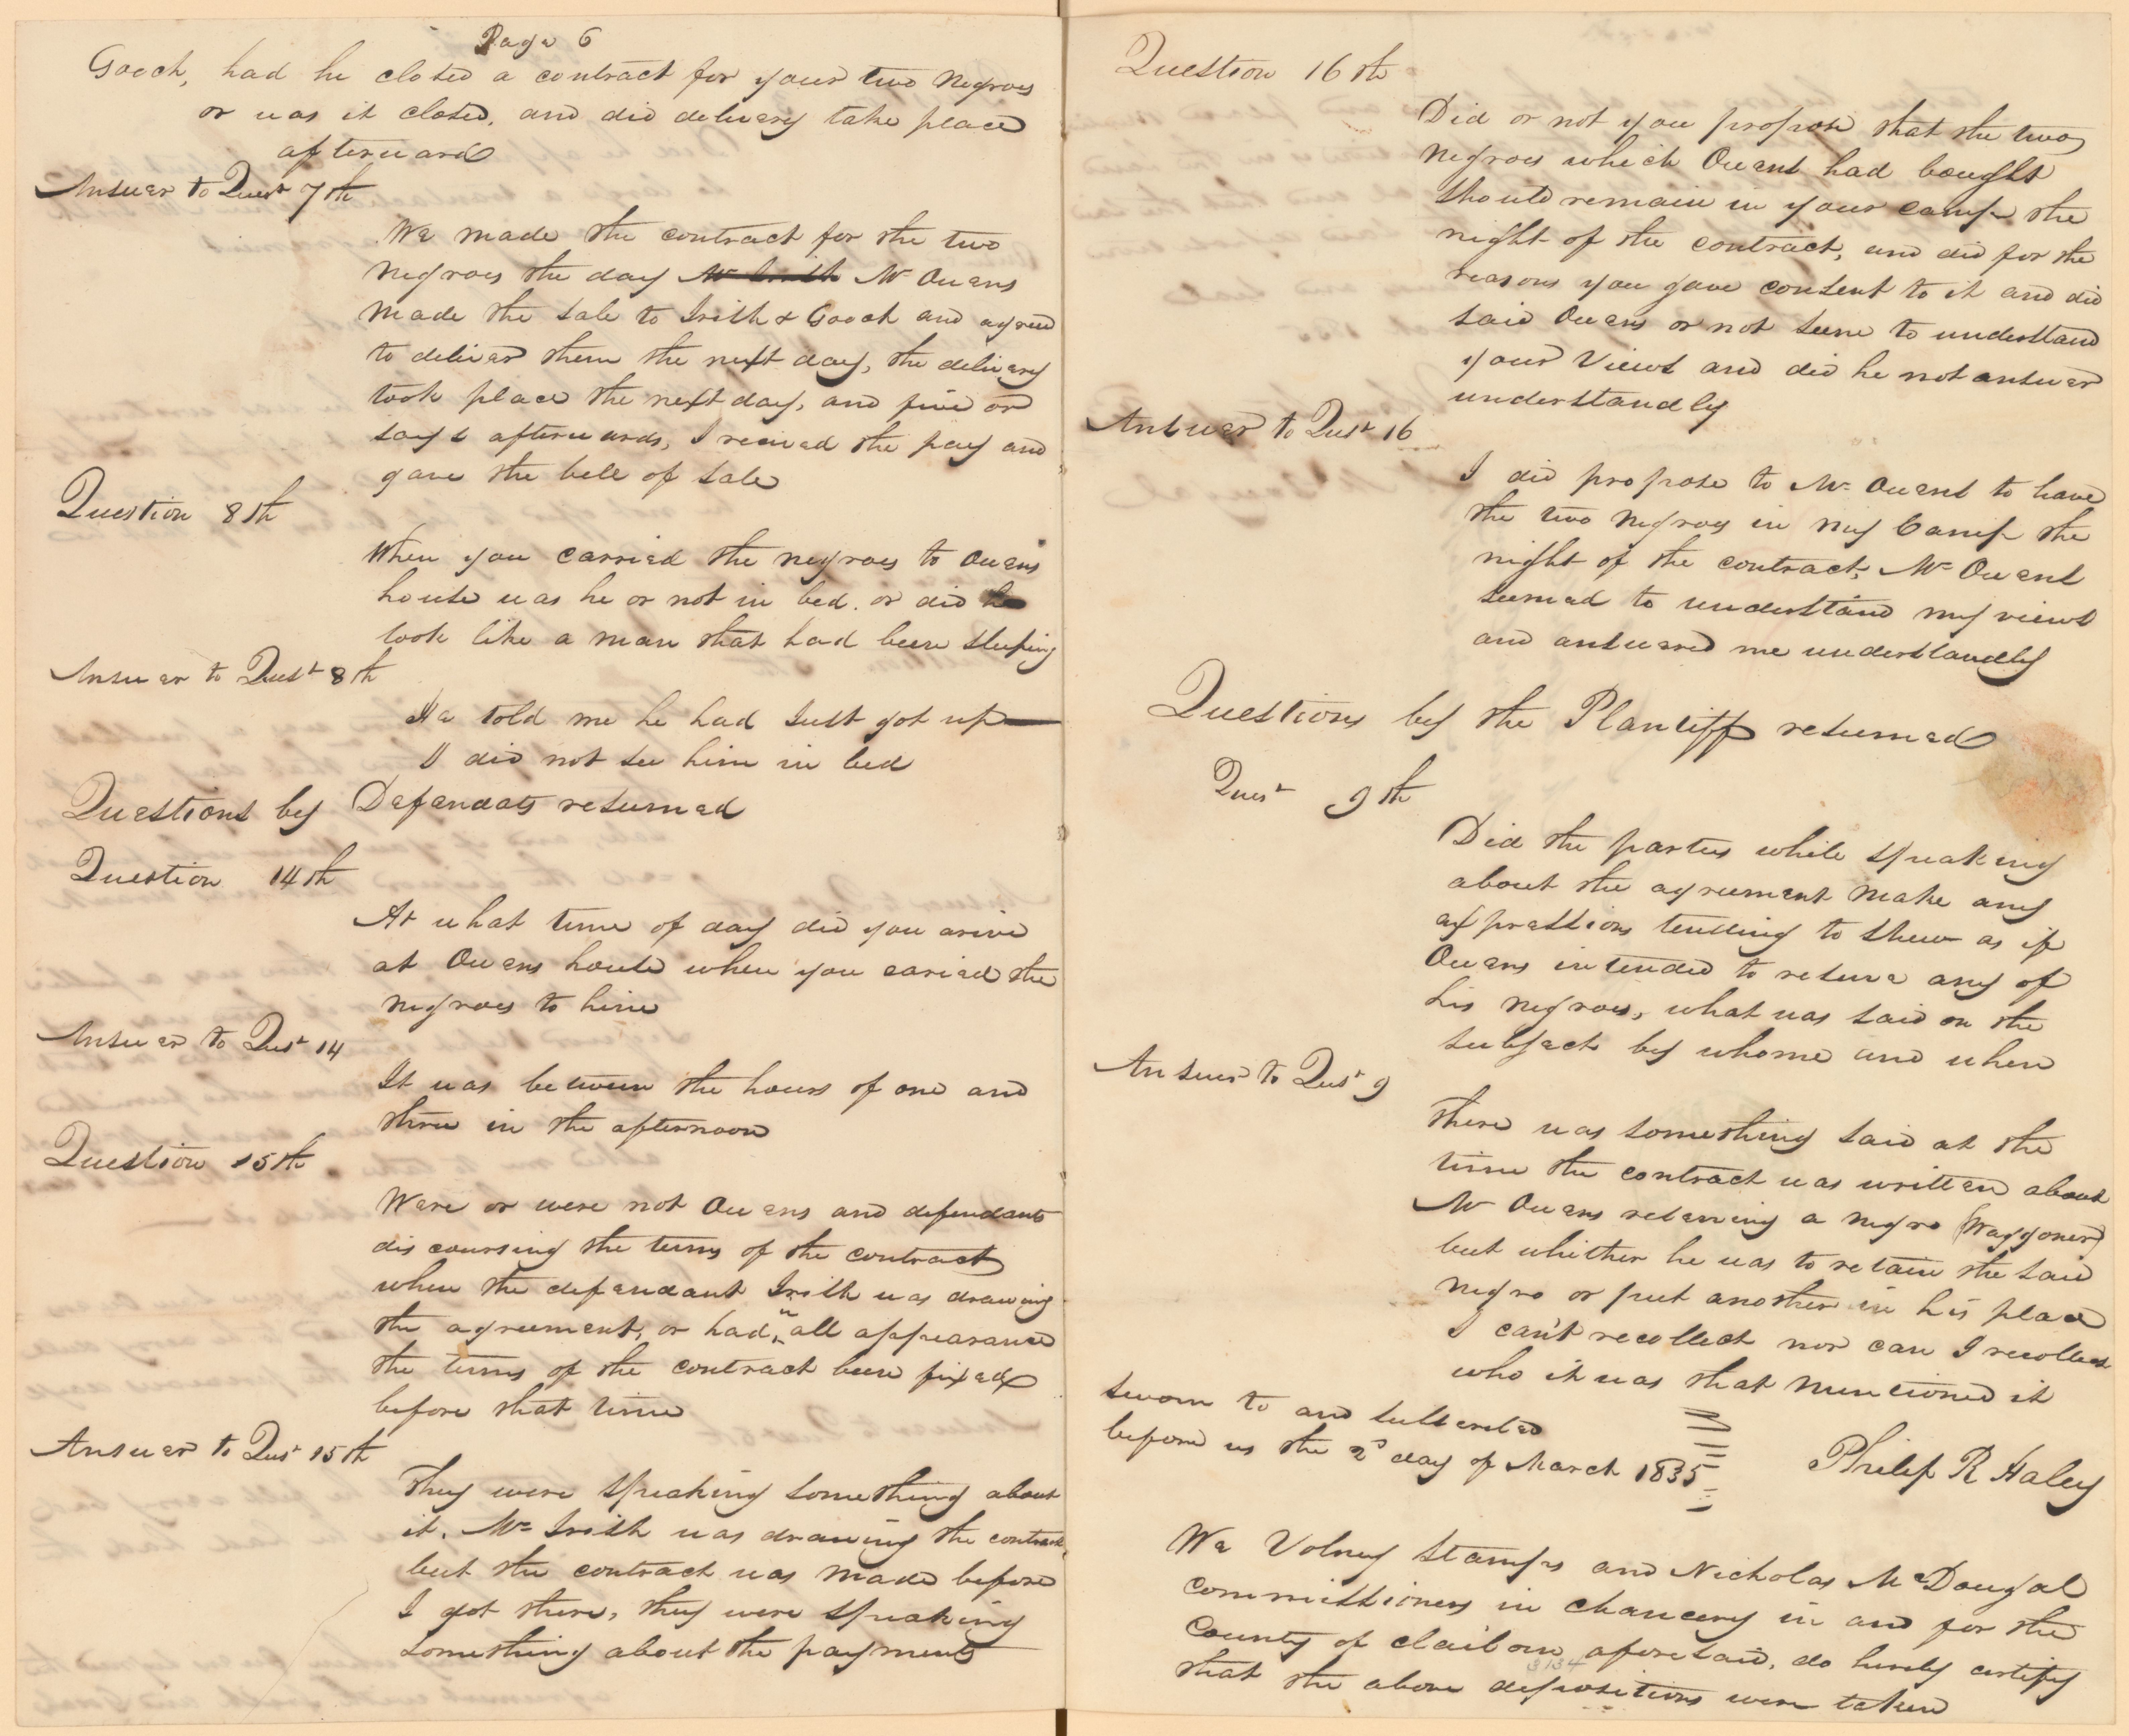 Page 6
Gooch, had he closed a contract for your two Negroes
or was it closed, and did delivery take place
afterward
Answer to Quest 7th
We made the contract for the two
negroes the day Mr Irish Mr Owens
made the sale to Irish & Gooch and agreed
to deliver them the next day, the delivery
took place the next day, and five or
days afterwards, I recived the pay and
gave the bill of sale
Question 8th
When you carried the negroes to Owens
house was he or not in bed. or did he
look like a man that had been sleeping
Answer to Quest 8th
He told me he had Just got up
I did not see him in bed
Questions by Defendats resumed
Question 14th
At what time of day did you arive
at Owens house when you caried the
negroes to him
Answer to Quest 14
It was between the hours of one and
three in the afternoon
Question 15th
Were or were not Owens and defendants
discoursing the terms of the contract
when the defendant Irish was drawing
the agreement, or had, in all appearance
the terms of the contract been fixed
before that time
Answer to Quest 15th
They were speaking something about
it, Mr Irish was drawing the contract
but the contract was made before
I got there, they were speaking
something about the payments
Question 16th
Did or not you propose that the two
negroes which Owens had bought
should remain in your camp the
night of the contract, and did for the
reasons you gave consent to it and did
said Owens or not seem to understand
your Views and did he not answer
understandly
Answer to Quest 16
I did propose to Mr Owens to have
the two negroes in my Camp the
night of the contract, Mr Owens
seemed to understand my views
and answared me understandly
Questions by the Plantiff resumed
Quest 9th
Did the parties while speaking
about the agreement make any
expressions tending to shew as if
Owens intended to reserve any of
his negroes, what was said on the
subject by whome and when
Answer to Quest 9
There was something said at the
time the contract was written about
Mr Owens retaining a negro (Waggoner)
but whither he was to retain the said
negro or put another in his place
I can't recollect nor can I recollect
who it was that mentioned it
Sworn to and subscribed
before us the 2d day of March 1835
Philip R Haley
We Volney Stamps and Nicholas McDougal
commissioners in chancery in and for the
County of claiborn aforesaid, do hereby certify
3134
that the above depositions were taken